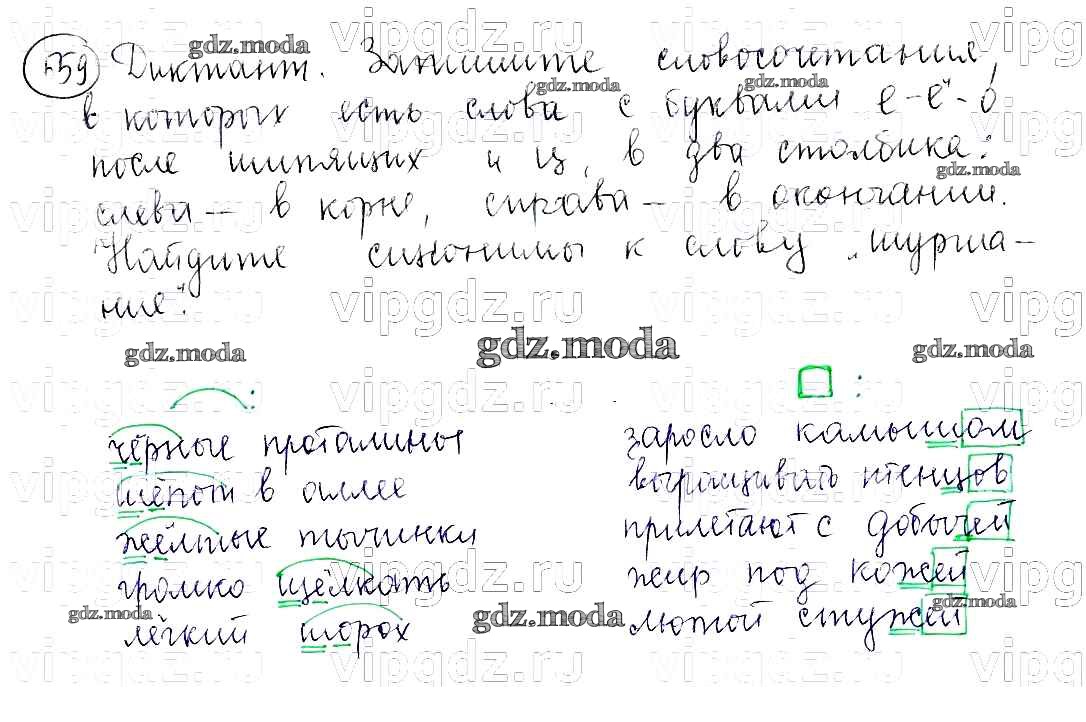 559 Диктант. Запишите словосочетания,
в которых есть слова с буквами е-ё-о
после шипящих и ц, в два столбика:
слева — в корне, справа — в окончании.
Найдите синонимы к слову „шурша-
ние".
чёрные проталины
шёпот в аллее
жёлтые тычинки
громко щёлкать
лёгкий шорох
заросло камышом
выращивать птенцов
прилетают с добычей
жир под кожей
лютой стужей
gdz.moda
vipgdz.ru